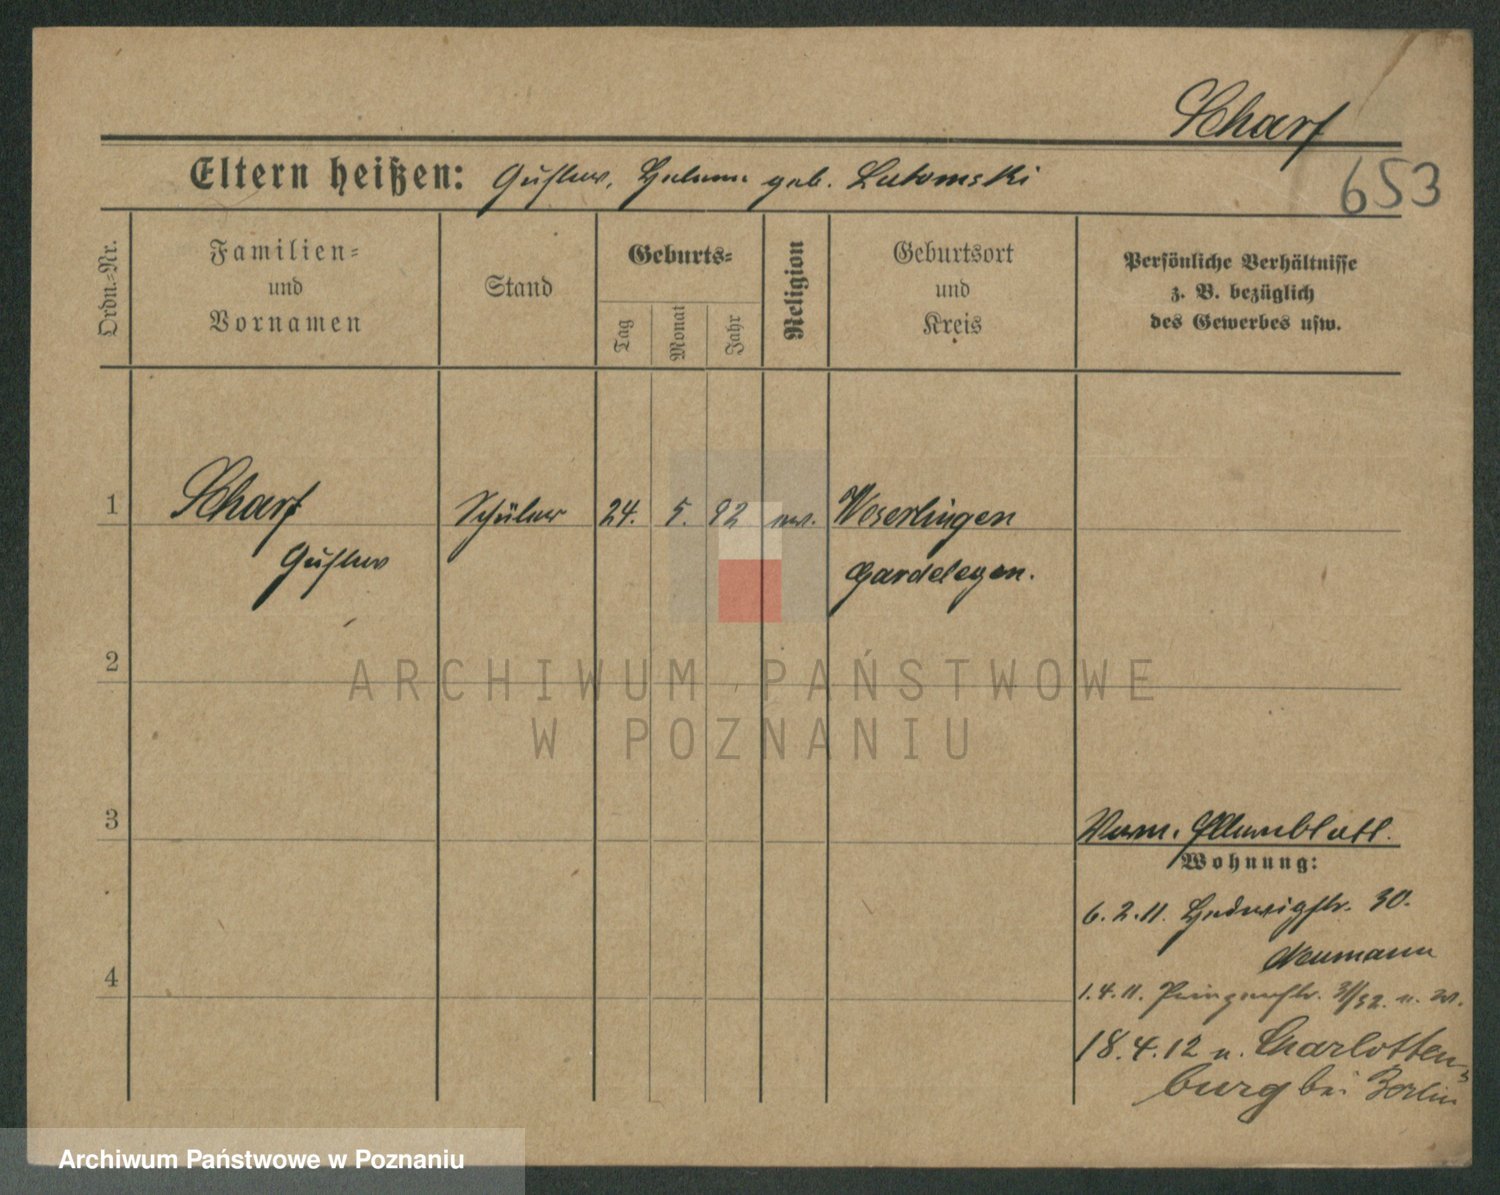 Scharf
653
Eltern heißen: Gustav, Helene geb. Lutomski
Ordn.-Nr.
Familien-
und
Vornamen
Stand
Geburts-
Tag
Monat
Jahr
Religion
Geburtsort
und
Kreis
Persönliche Verhältnisse
z. B. bezüglich
des Gewerbes usw.
1
Scharf
Gustav
Schüler
24. 5. 92 ev.
Weserlingen
Gardelegen.
2
ARCHIWUM PAŃSTWOWE
W POZNANIU
3
Elternblatt.
Wohnung:
6. 2. 11. Hedwigstr. 30.
Neumann
4
1. 4. 11. Prinzenstr. 31/32.
18. 4. 12 n. Charlotten-
burg bei Berlin
Archiwum Państwowe w Poznaniu